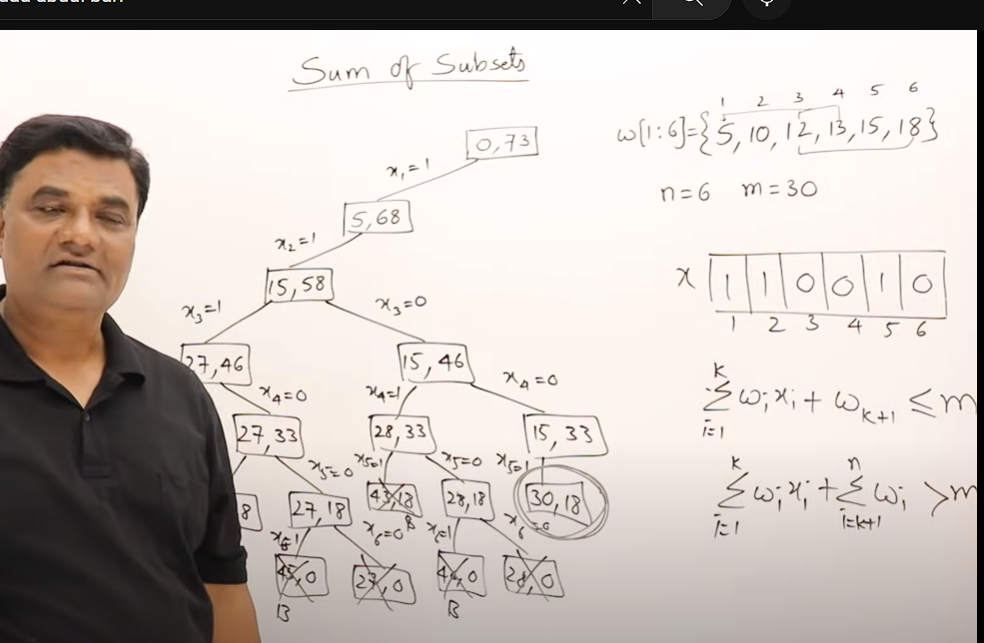 Sum of Subsets
0,73
x₁=1
5,68
x₂=1
15,58
x₃=1
x₃=0
27,46
15,46
x₄=0
x₄=1
x₄=0
27,33
28,33
15,33
x₅=0
x₅=1
x₅=0
x₅=1
8
27,18
43,18
B
28,18
30,18
x₆=1
x₆=0
x₆=1
x₆=0
45,0
27,0
28,0
B
B
1 2 3 4 5 6
w[1:6]={5,10,12,13,15,18}
n=6 m=30
x 1 1 0 0 1 0
1 2 3 4 5 6
k
∑ wᵢxᵢ + wₖ₊₁ ≤ m
i=1
k n
∑ wᵢxᵢ + ∑ wᵢ > m
i=1 i=k+1